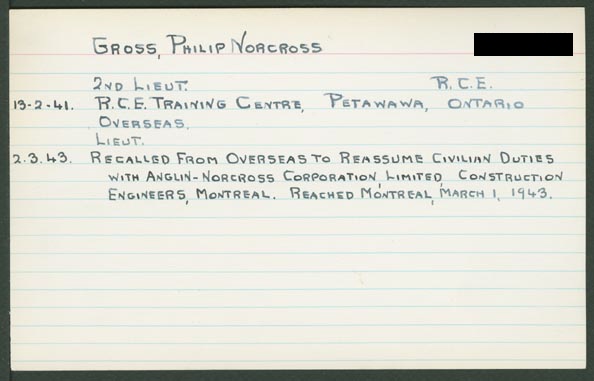 GROSS, PHILIP NORCROSS
2ND LIEUT. R.C.E.
13-2-41. R.C.E. TRAINING CENTRE, PETAWAWA, ONTARIO
OVERSEAS.
LIEUT.
2.3.43. RECALLED FROM OVERSEAS TO REASSUME CIVILIAN DUTIES
WITH ANGLIN-NORCROSS CORPORATION, LIMITED, CONSTRUCTION
ENGINEERS, MONTREAL. REACHED MONTREAL, MARCH 1, 1943.